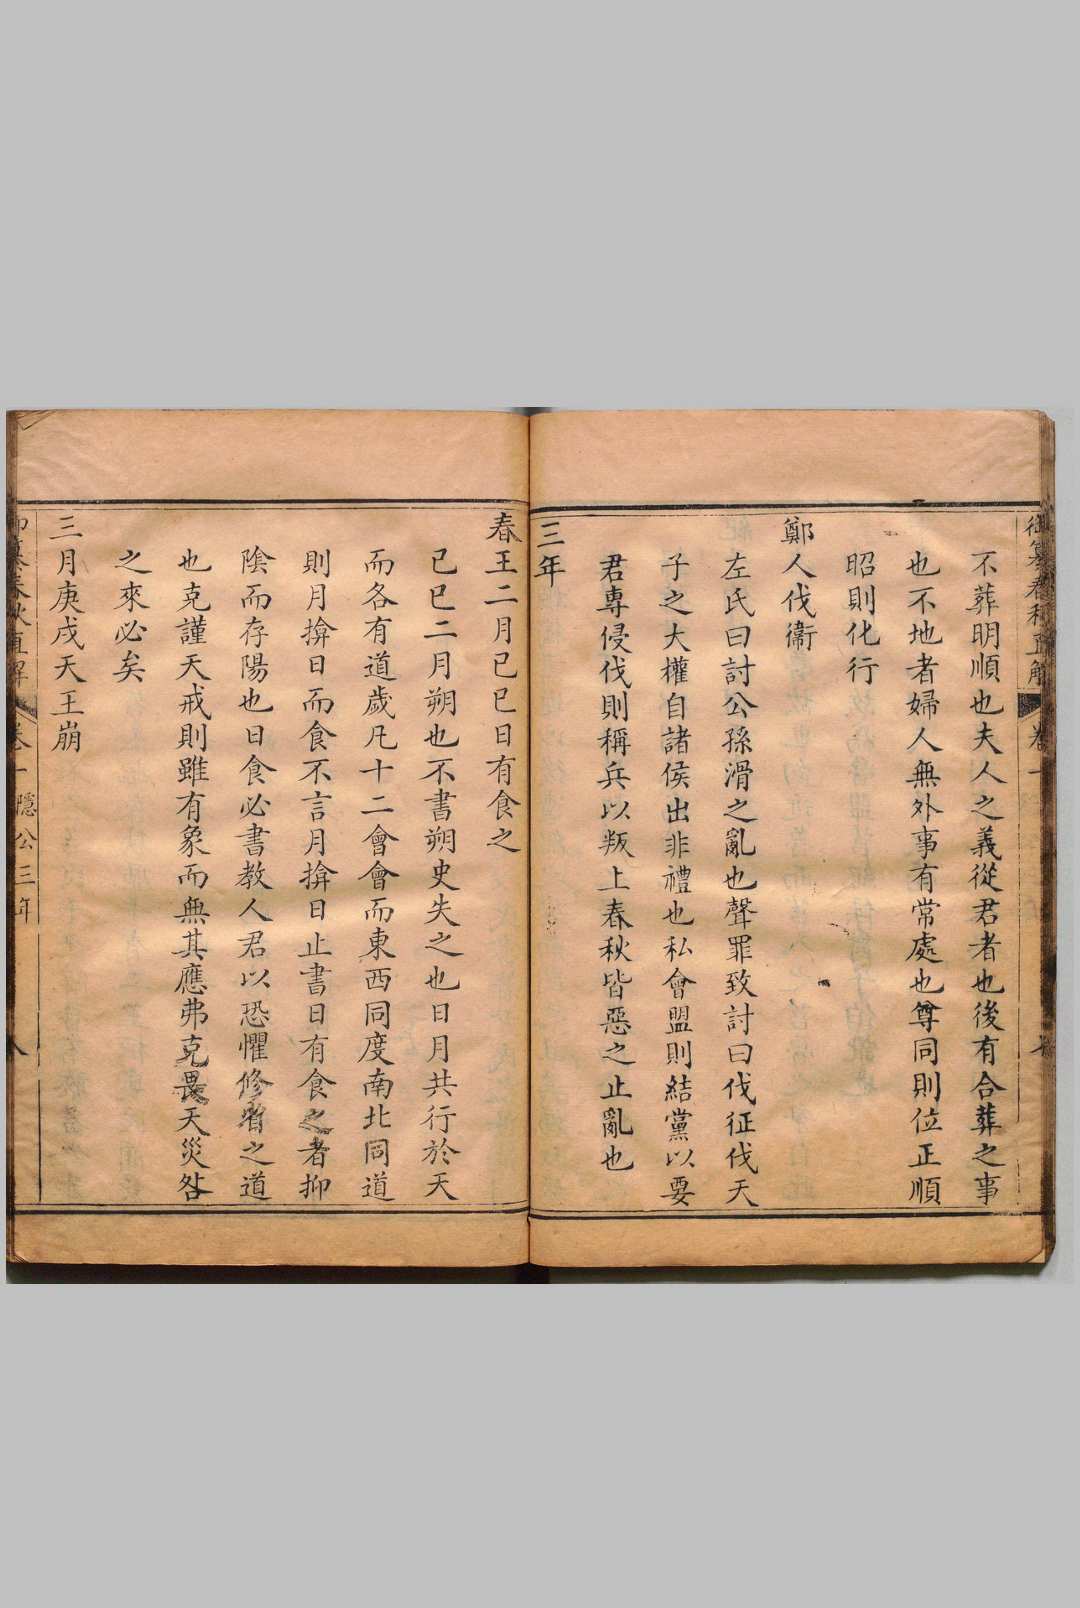 御纂春秋直解 卷一 七
不葬明順也夫人之義從君者也後有合葬之事
也不地者婦人無外事有常處也尊同則位正順
昭則化行
鄭人伐衞
左氏曰討公孫滑之亂也聲罪致討曰伐征伐天
子之大權自諸侯出非禮也私會盟則結黨以要
君專侵伐則稱兵以叛上春秋皆惡之止亂也
三年
春王二月己巳日有食之
己巳二月朔也不書朔史失之也日月共行於天
而各有道歲凡十二會會而東西同度南北同道
則月揜日而食不言月揜日止書日有食之者抑
陰而存陽也日食必書教人君以恐懼修省之道
也克謹天戒則雖有象而無其應弗克畏天災咎
之來必矣
三月庚戌天王崩
御纂春秋直解 卷一 隱公三年 八